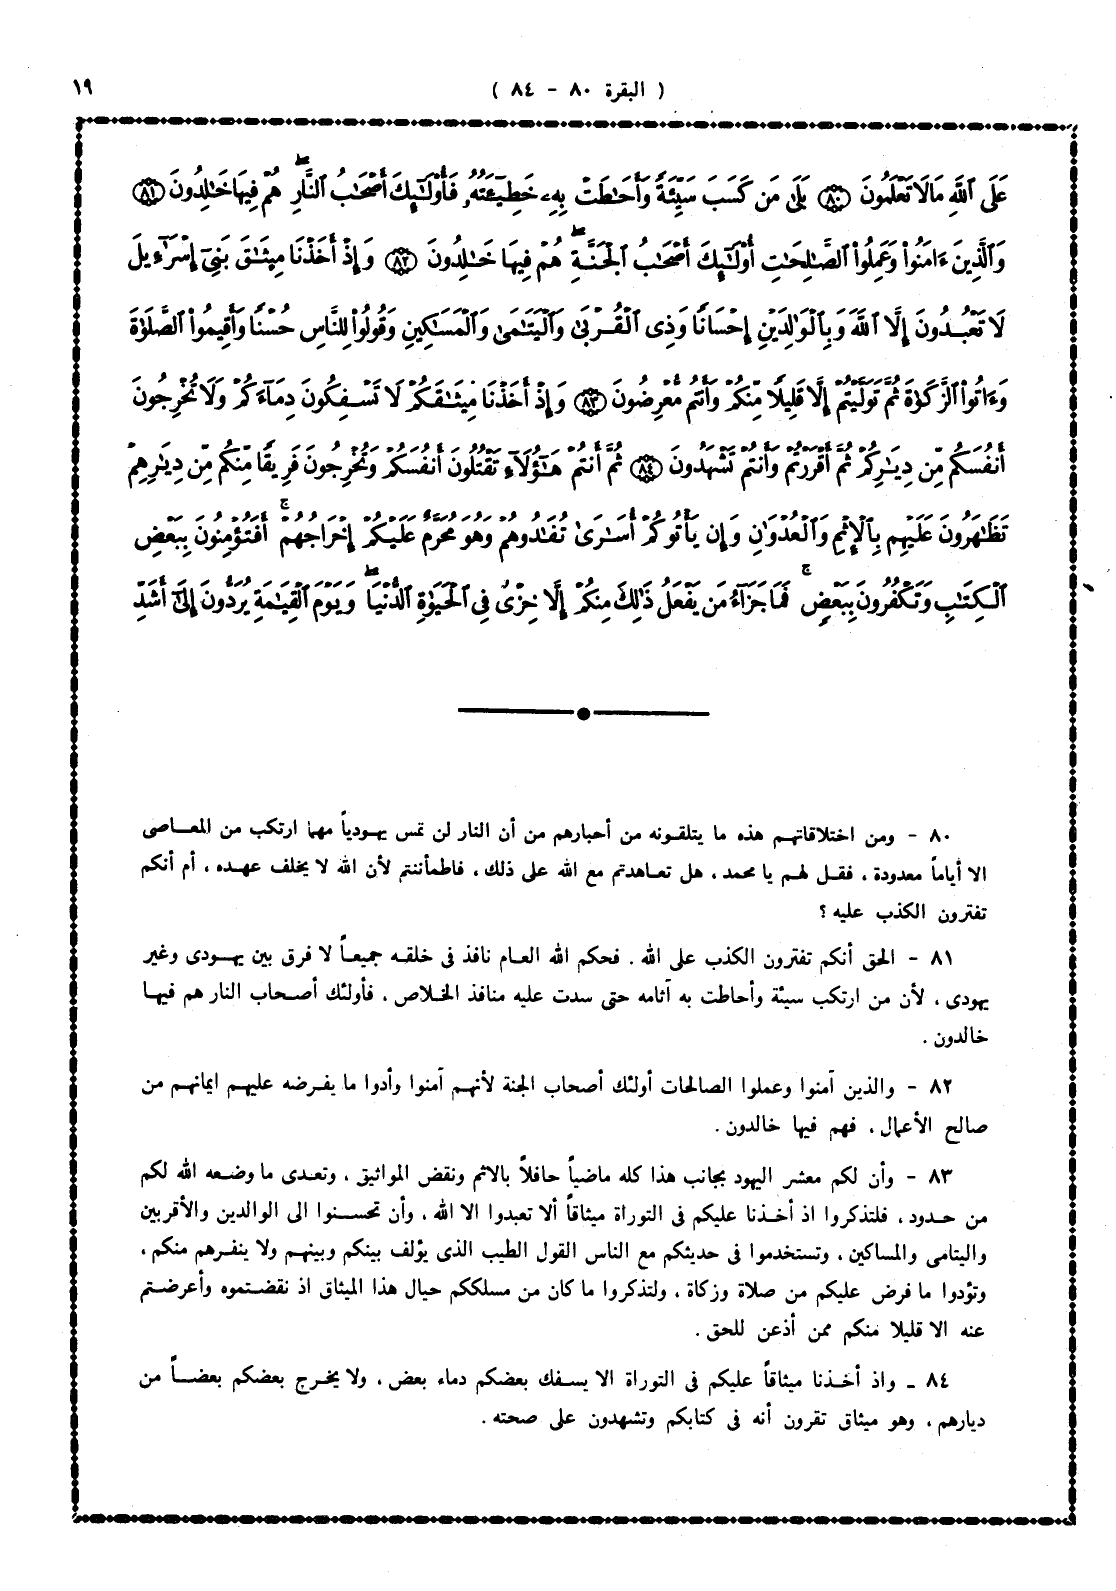 ( البقرة ٨٠ - ٨٤ )
١٩
عَلَى ٱللَّهِ مَالَا تَعْلَمُونَ ۝٨٠ بَلَىٰ مَن كَسَبَ سَيِّئَةً وَأَحَـٰطَتْ بِهِۦ خَطِيٓـَٔتُهُۥ فَأُو۟لَـٰٓئِكَ أَصْحَـٰبُ ٱلنَّارِ ۖ هُمْ فِيهَا خَـٰلِدُونَ ۝٨١
وَٱلَّذِينَ ءَامَنُوا۟ وَعَمِلُوا۟ ٱلصَّـٰلِحَـٰتِ أُو۟لَـٰٓئِكَ أَصْحَـٰبُ ٱلْجَنَّةِ ۖ هُمْ فِيهَا خَـٰلِدُونَ ۝٨٢ وَإِذْ أَخَذْنَا مِيثَـٰقَ بَنِىٓ إِسْرَٰٓءِيلَ
لَا تَعْبُدُونَ إِلَّا ٱللَّهَ وَبِٱلْوَٰلِدَيْنِ إِحْسَانًا وَذِى ٱلْقُرْبَىٰ وَٱلْيَتَـٰمَىٰ وَٱلْمَسَـٰكِينِ وَقُولُوا۟ لِلنَّاسِ حُسْنًا وَأَقِيمُوا۟ ٱلصَّلَوٰةَ
وَءَاتُوا۟ ٱلزَّكَوٰةَ ثُمَّ تَوَلَّيْتُمْ إِلَّا قَلِيلًا مِّنكُمْ وَأَنتُم مُّعْرِضُونَ ۝٨٣ وَإِذْ أَخَذْنَا مِيثَـٰقَكُمْ لَا تَسْفِكُونَ دِمَآءَكُمْ وَلَا تُخْرِجُونَ
أَنفُسَكُم مِّن دِيَـٰرِكُمْ ثُمَّ أَقْرَرْتُمْ وَأَنتُمْ تَشْهَدُونَ ۝٨٤ ثُمَّ أَنتُمْ هَـٰٓؤُلَآءِ تَقْتُلُونَ أَنفُسَكُمْ وَتُخْرِجُونَ فَرِيقًا مِّنكُم مِّن دِيَـٰرِهِمْ
تَظَـٰهَرُونَ عَلَيْهِم بِٱلْإِثْمِ وَٱلْعُدْوَٰنِ وَإِن يَأْتُوكُمْ أُسَـٰرَىٰ تُفَـٰدُوهُمْ وَهُوَ مُحَرَّمٌ عَلَيْكُمْ إِخْرَاجُهُمْ ۚ أَفَتُؤْمِنُونَ بِبَعْضِ
ٱلْكِتَـٰبِ وَتَكْفُرُونَ بِبَعْضٍ ۚ فَمَا جَزَآءُ مَن يَفْعَلُ ذَٰلِكَ مِنكُمْ إِلَّا خِزْىٌ فِى ٱلْحَيَوٰةِ ٱلدُّنْيَا ۖ وَيَوْمَ ٱلْقِيَـٰمَةِ يُرَدُّونَ إِلَىٰٓ أَشَدِّ
٨٠ - ومن اختلاقاتهم هذه ما يتلقونه من أحبارهم من أن النار لن تمس يهودياً مهما ارتكب من المعاصى
الا أياماً معدودة ، فقل لهم يا محمد ، هل تعاهدتم مع الله على ذلك ، فاطمأننتم لأن الله لا يخلف عهده ، أم أنكم
تفترون الكذب عليه ؟
٨١ - الحق أنكم تفترون الكذب على الله . فحكم الله العام نافذ فى خلقه جميعاً لا فرق بين يهودى وغير
يهودى ، لأن من ارتكب سيئة وأحاطت به آثامه حتى سدت عليه منافذ الخلاص ، فأولئك أصحاب النار هم فيها
خالدون .
٨٢ - والذين آمنوا وعملوا الصالحات أولئك أصحاب الجنة لأنهم آمنوا وأدوا ما يفرضه عليهم ايمانهم من
صالح الأعمال ، فهم فيها خالدون .
٨٣ - وأن لكم معشر اليهود بجانب هذا كله ماضياً حافلاً بالاثم ونقض المواثيق ، وتعدى ما وضعه الله لكم
من حدود ، فلتذكروا اذ أخذنا عليكم فى التوراة ميثاقاً ألا تعبدوا الا الله ، وأن تحسنوا الى الوالدين والأقربين
واليتامى والمساكين ، وتستخدموا فى حديثكم مع الناس القول الطيب الذى يؤلف بينكم وبينهم ولا ينفرهم منكم ،
وتؤدوا ما فرض عليكم من صلاة وزكاة ، ولتذكروا ما كان من مسلككم حيال هذا الميثاق اذ نقضتموه وأعرضتم
عنه الا قليلا منكم ممن أذعن للحق .
٨٤ - واذ أخذنا ميثاقاً عليكم فى التوراة الا يسفك بعضكم دماء بعض ، ولا يخرج بعضكم بعضاً من
ديارهم ، وهو ميثاق تقرون أنه فى كتابكم وتشهدون على صحته .